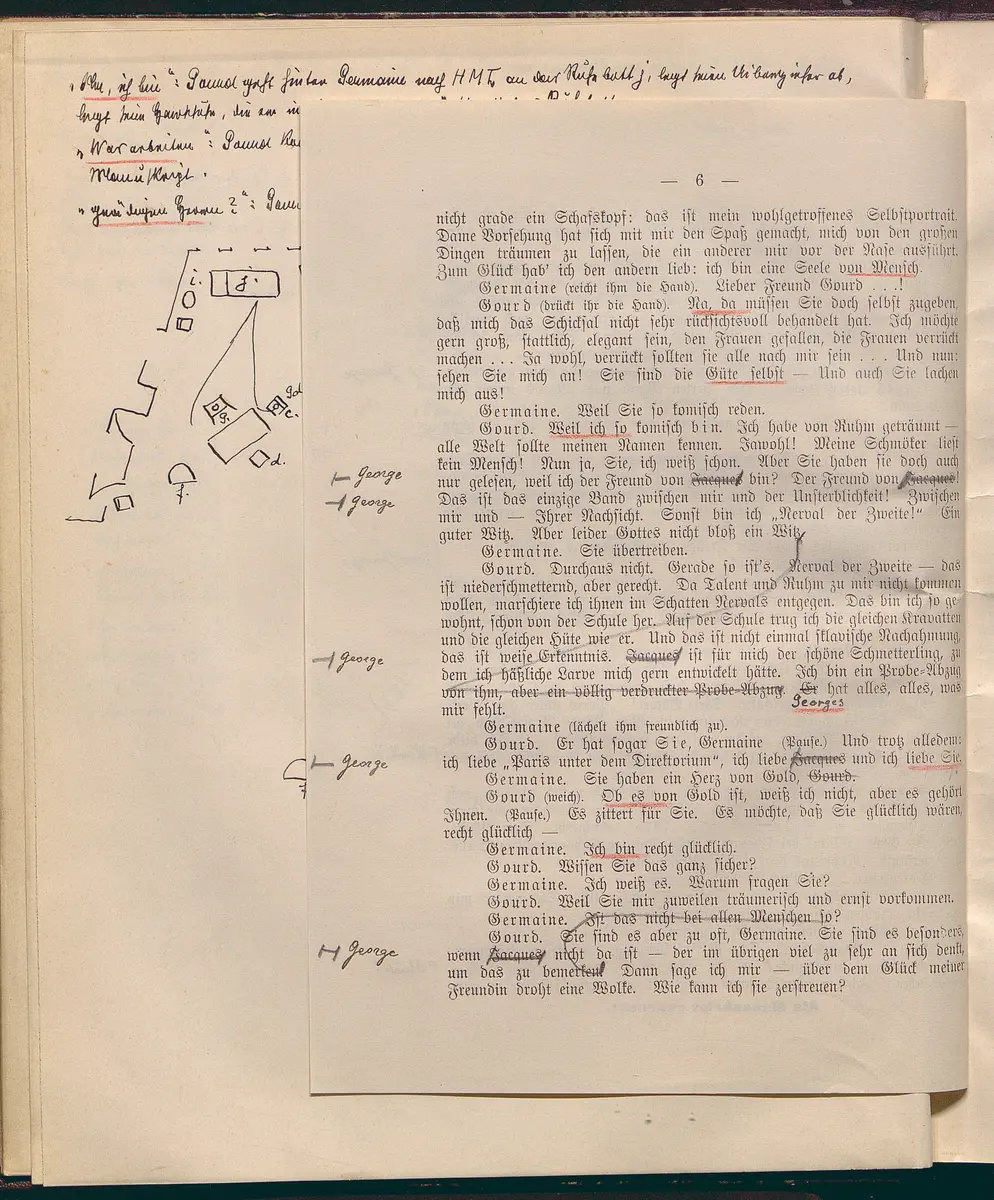 „Nun, ich bin“: Gourd geht hinter Germaine nach HMT, an das Ruhebett j, legt seinen Überzieher ab,
legt seine Handschuhe, die er in
„Was arbeiten“: Gourd
Manuskript.
„gnädigen Herrn?“: Gourd
i.
j.
g.
c.
d.
f.
— 6 —
nicht grade ein Schafskopf: das ist mein wohlgetroffenes Selbstportrait.
Dame Vorsehung hat sich mit mir den Spaß gemacht, mich von den großen
Dingen träumen zu lassen, die ein anderer mir vor der Nase ausführt.
Zum Glück hab' ich den andern lieb: ich bin eine Seele von Mensch.
Germaine (reicht ihm die Hand). Lieber Freund Gourd . . .!
Gourd (drückt ihr die Hand). Na, da müssen Sie doch selbst zugeben,
daß mich das Schicksal nicht sehr rücksichtsvoll behandelt hat. Ich möchte
gern groß, stattlich, elegant sein, den Frauen gefallen, die Frauen verrückt
machen . . . Ja wohl, verrückt sollten sie alle nach mir sein . . . Und nun:
sehen Sie mich an! Sie sind die Güte selbst — Und auch Sie lachen
mich aus!
Germaine. Weil Sie so komisch reden.
Gourd. Weil ich so komisch bin. Ich habe von Ruhm geträumt —
alle Welt sollte meinen Namen kennen. Jawohl! Meine Schmöker liest
kein Mensch! Nun ja, Sie, ich weiß schon. Aber Sie haben sie doch auch
George
nur gelesen, weil ich der Freund von Jacques bin? Der Freund von Jacques!
George
Das ist das einzige Band zwischen mir und der Unsterblichkeit! Zwischen
mir und — Ihrer Nachsicht. Sonst bin ich „Nerval der Zweite!“ Ein
guter Witz. Aber leider Gottes nicht bloß ein Witz.
Germaine. Sie übertreiben.
Gourd. Durchaus nicht. Gerade so ist's. Nerval der Zweite — das
ist niederschmetternd, aber gerecht. Da Talent und Ruhm zu mir nicht kommen
wollen, marschiere ich ihnen im Schatten Nervals entgegen. Das bin ich so ge-
wohnt, schon von der Schule her. Auf der Schule trug ich die gleichen Kravatten
und die gleichen Hüte wie er. Und das ist nicht einmal sklavische Nachahmung,
George
das ist weise Erkenntnis. Jacques ist für mich der schöne Schmetterling, zu
dem ich häßliche Larve mich gern entwickelt hätte. Ich bin ein Probe-Abzug
von ihm, aber ein völlig verdruckter Probe-Abzug. Er hat alles, alles, was
Georges
mir fehlt.
Germaine (lächelt ihm freundlich zu).
Gourd. Er hat sogar Sie, Germaine (Pause.) Und trotz alledem:
George
ich liebe „Paris unter dem Direktorium“, ich liebe Jacques und ich liebe Sie.
Germaine. Sie haben ein Herz von Gold, Gourd.
Gourd (weich). Ob es von Gold ist, weiß ich nicht, aber es gehört
Ihnen. (Pause.) Es zittert für Sie. Es möchte, daß Sie glücklich wären,
recht glücklich —
Germaine. Ich bin recht glücklich.
Gourd. Wissen Sie das ganz sicher?
Germaine. Ich weiß es. Warum fragen Sie?
Gourd. Weil Sie mir zuweilen träumerisch und ernst vorkommen.
Germaine. Ist das nicht bei allen Menschen so?
Gourd. Sie sind es aber zu oft, Germaine. Sie sind es besonders,
George
wenn Jacques nicht da ist — der im übrigen viel zu sehr an sich denkt,
um das zu bemerken! Dann sage ich mir — über dem Glück meiner
Freundin droht eine Wolke. Wie kann ich sie zerstreuen?